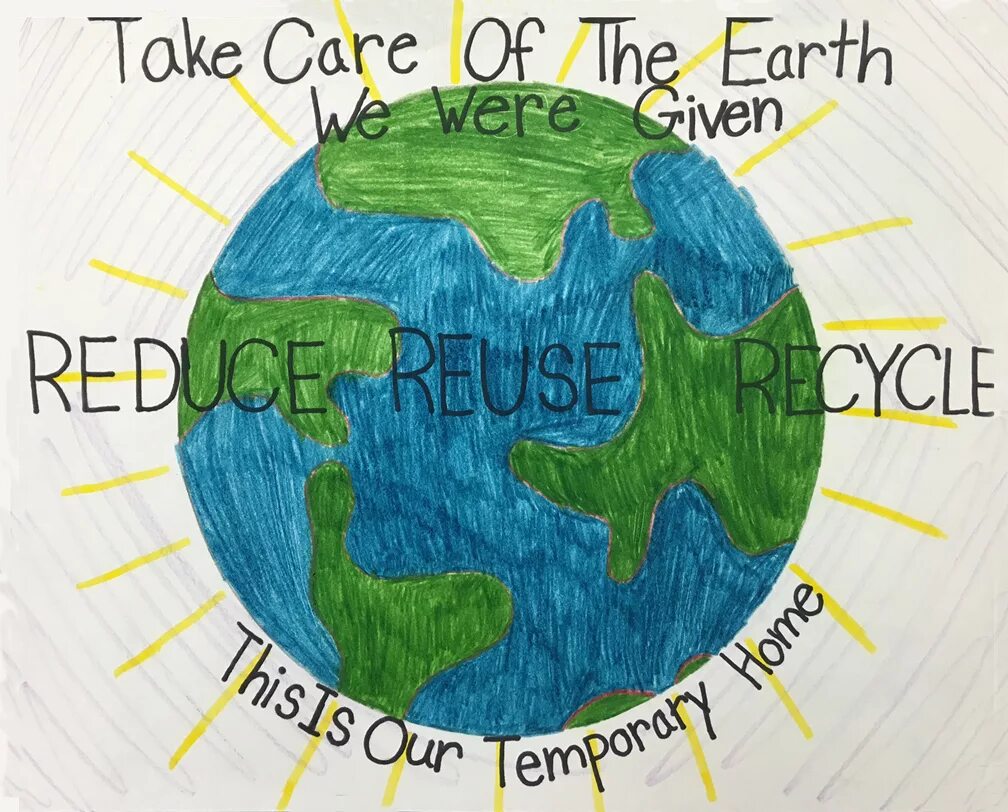 Take Care Of The Earth
We Were Given
REDUCE REUSE RECYCLE
This Is Our Temporary Home